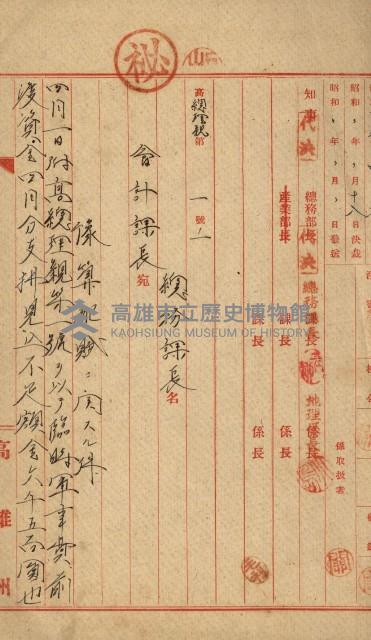 祕
昭和 年 月 十八日 決裁
昭和 年 月 日 發送
係取扱者
知事 代決 總務部長 代決 總務課長 地理係長
產業部長 課長 係長
課長 係長
高 總理親 第 一號ノ一
總務課長名
會計課長宛
豫算配賦ニ關スル件
四月一日附高總理親第一號ヲ以テ臨時軍事費前
渡資金四月分支拂見込不足額金六千五百圓也
高雄州
高雄市立歷史博物館
KAOHSIUNG MUSEUM OF HISTORY